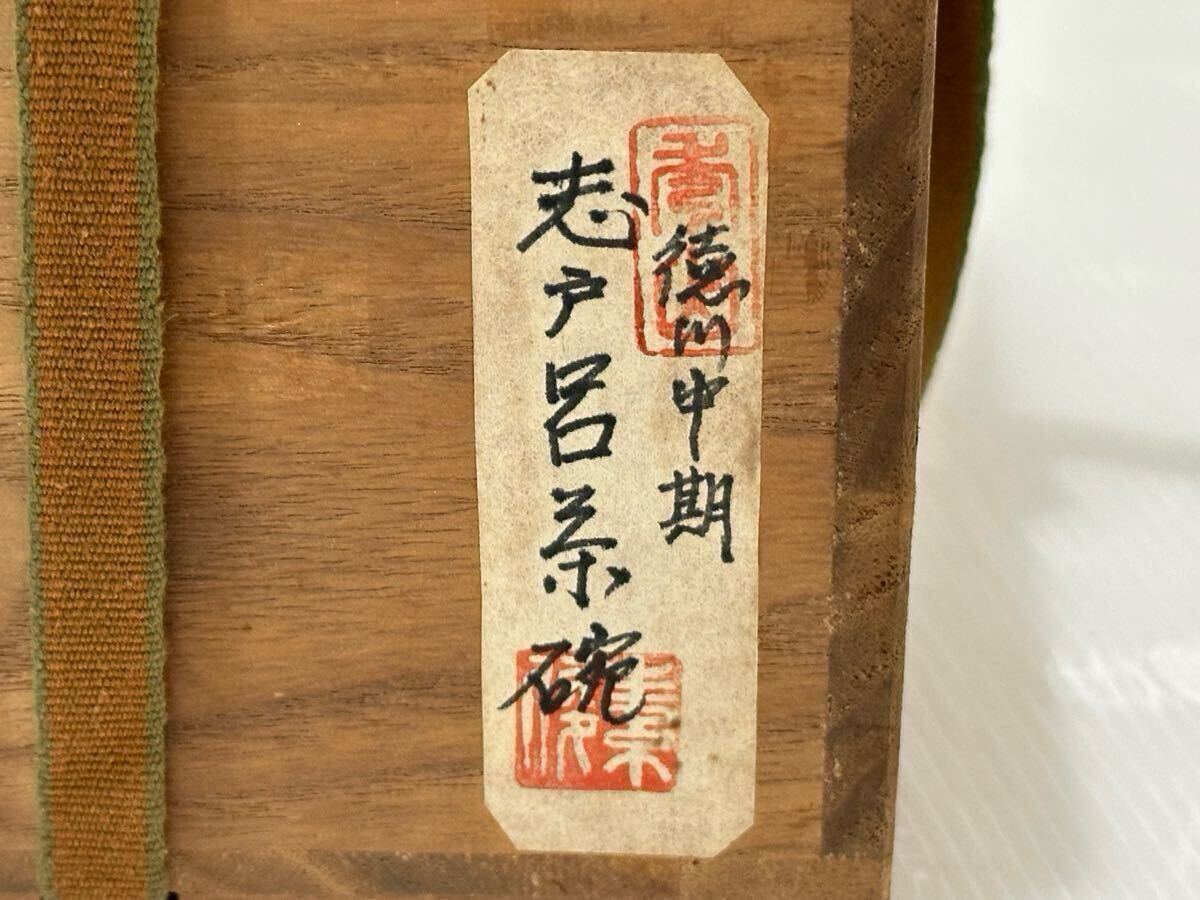 徳川中期
志戸呂茶碗